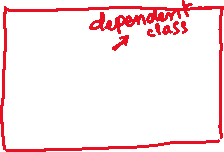 dependent
class